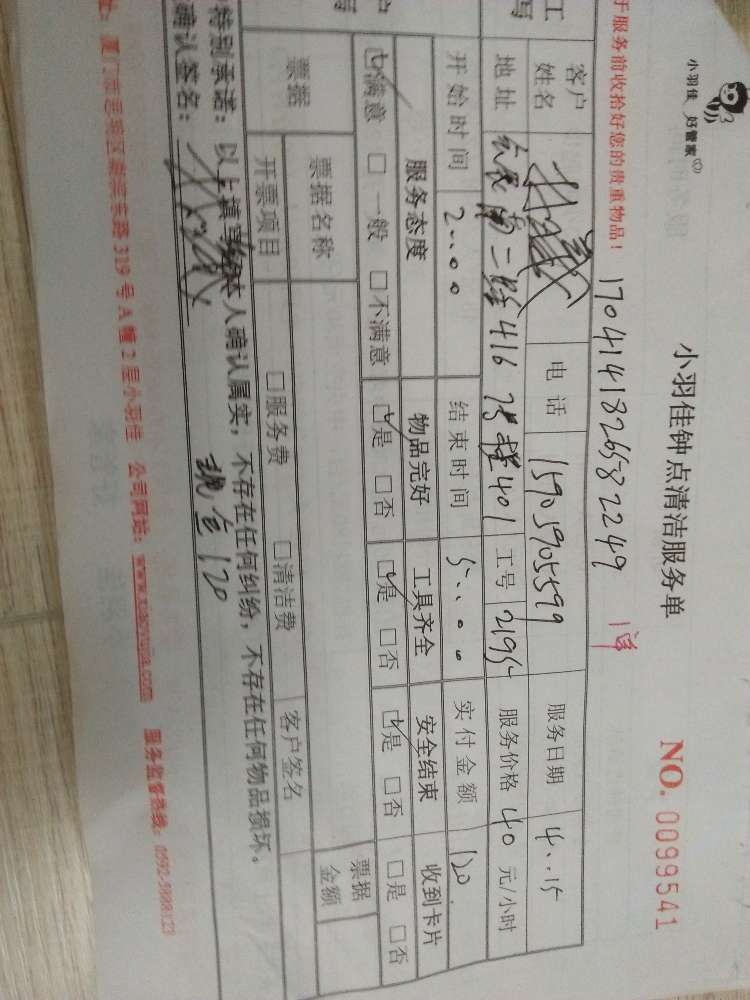 小羽佳 好管家
小羽佳钟点清洁服务单
NO. 0099541
于服务前收拾好您的贵重物品！ 1704141826582249
工
写
客户姓名 电话 15905905599 服务日期 4..15
地址 416 401 工号 2195 服务价格 40 元/小时
开始时间 2:00 结束时间 5:00 实付金额 120
户
写
服务态度 物品完好 工具齐全 安全结束 收到卡片
☑满意 □一般 □不满意 ☑是 □否 ☑是 □否 ☑是 □否 □是 □否
票据 票据名称 票据金额
开票项目 □服务费 □清洁费 客户签名
特别承诺：以上填写经本人确认属实，不存在任何纠纷，不存在任何物品损坏。
确认签名： 120
319 号 A 幢 2 层小羽佳 公司网站：www.xiaoyujia.com 服务监督热线：0592-5088123